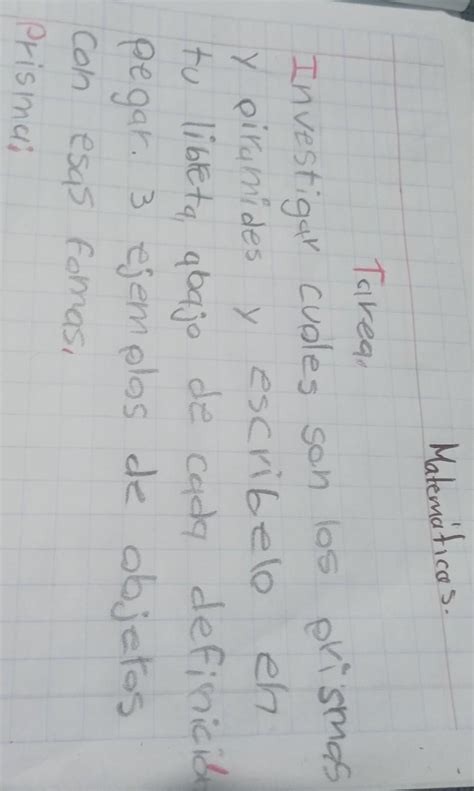 Matemáticas.
Tarea,
Investigar cuales son los prismas
y piramides y escribelo en
tu libreta, abajo de cada definició
pegar. 3 ejemplos de objetos
con esas fomas,
Prisma: